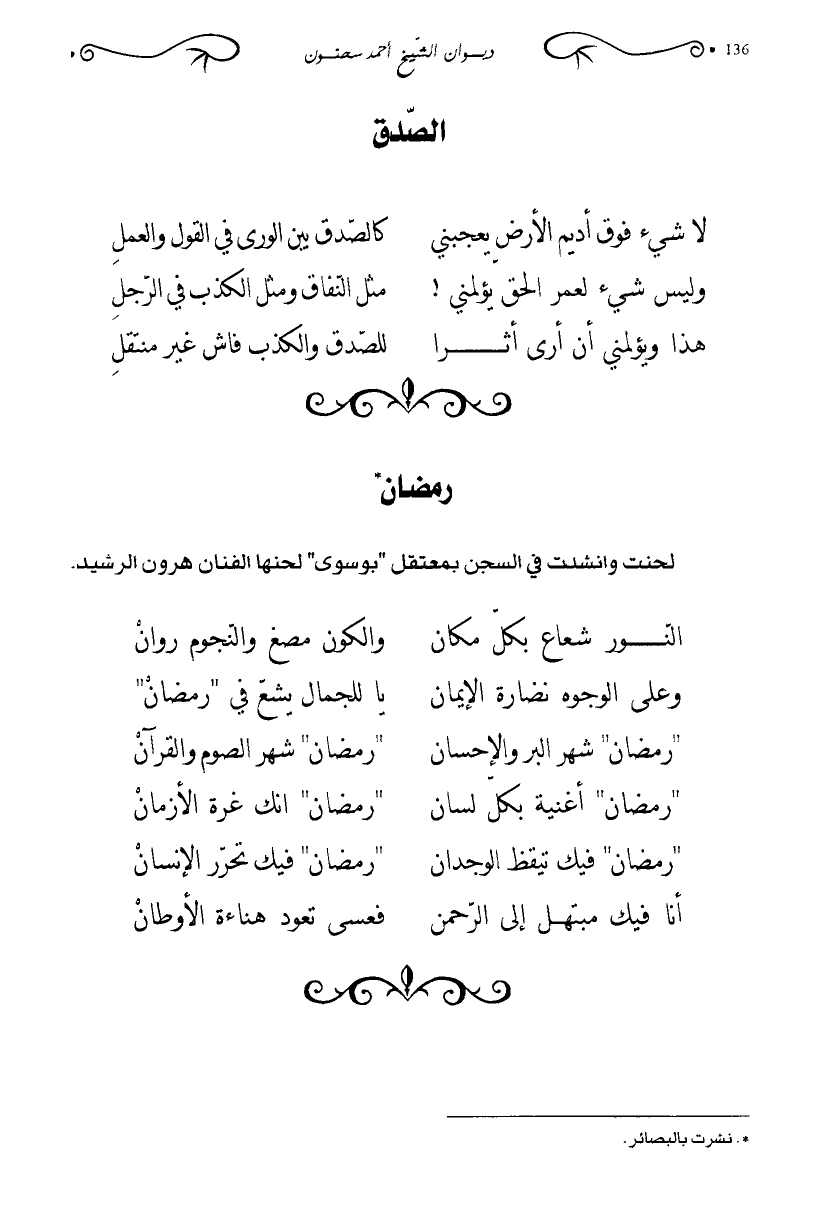 136 ديــوان الشّيخ أحمد سحنــون
الصّدق
لا شيء فوق أديم الأرض يعجبني كالصّدق بين الورى في القول والعملِ
وليس شيء لعمر الحق يؤلمني ! مثل النّفاق ومثل الكذب في الرّجلِ
هذا ويؤلمني أن أرى أثـــــرا للصّدق والكذب فاش غير منتقلِ
رمضان*
لحنت وانشدت في السجن بمعتقل "بوسوى" لحنها الفنان هرون الرشيد.
النّـــور شعاع بكلّ مكان والكون مصغ والنّجوم روانْ
وعلى الوجوه نضارة الإيمان يا للجمال يشعّ في "رمضانْ"
"رمضان" شهر البر والإحسان "رمضان" شهر الصوم والقرآنْ
"رمضان" أغنية بكلّ لسان "رمضان" انك غرة الأزمانْ
"رمضان" فيك تيقظ الوجدان "رمضان" فيك تحرّر الإنسانْ
أنا فيك مبتهـل إلى الرّحمن فعسى تعود هناءة الأوطانْ
*. نشرت بالبصائر.